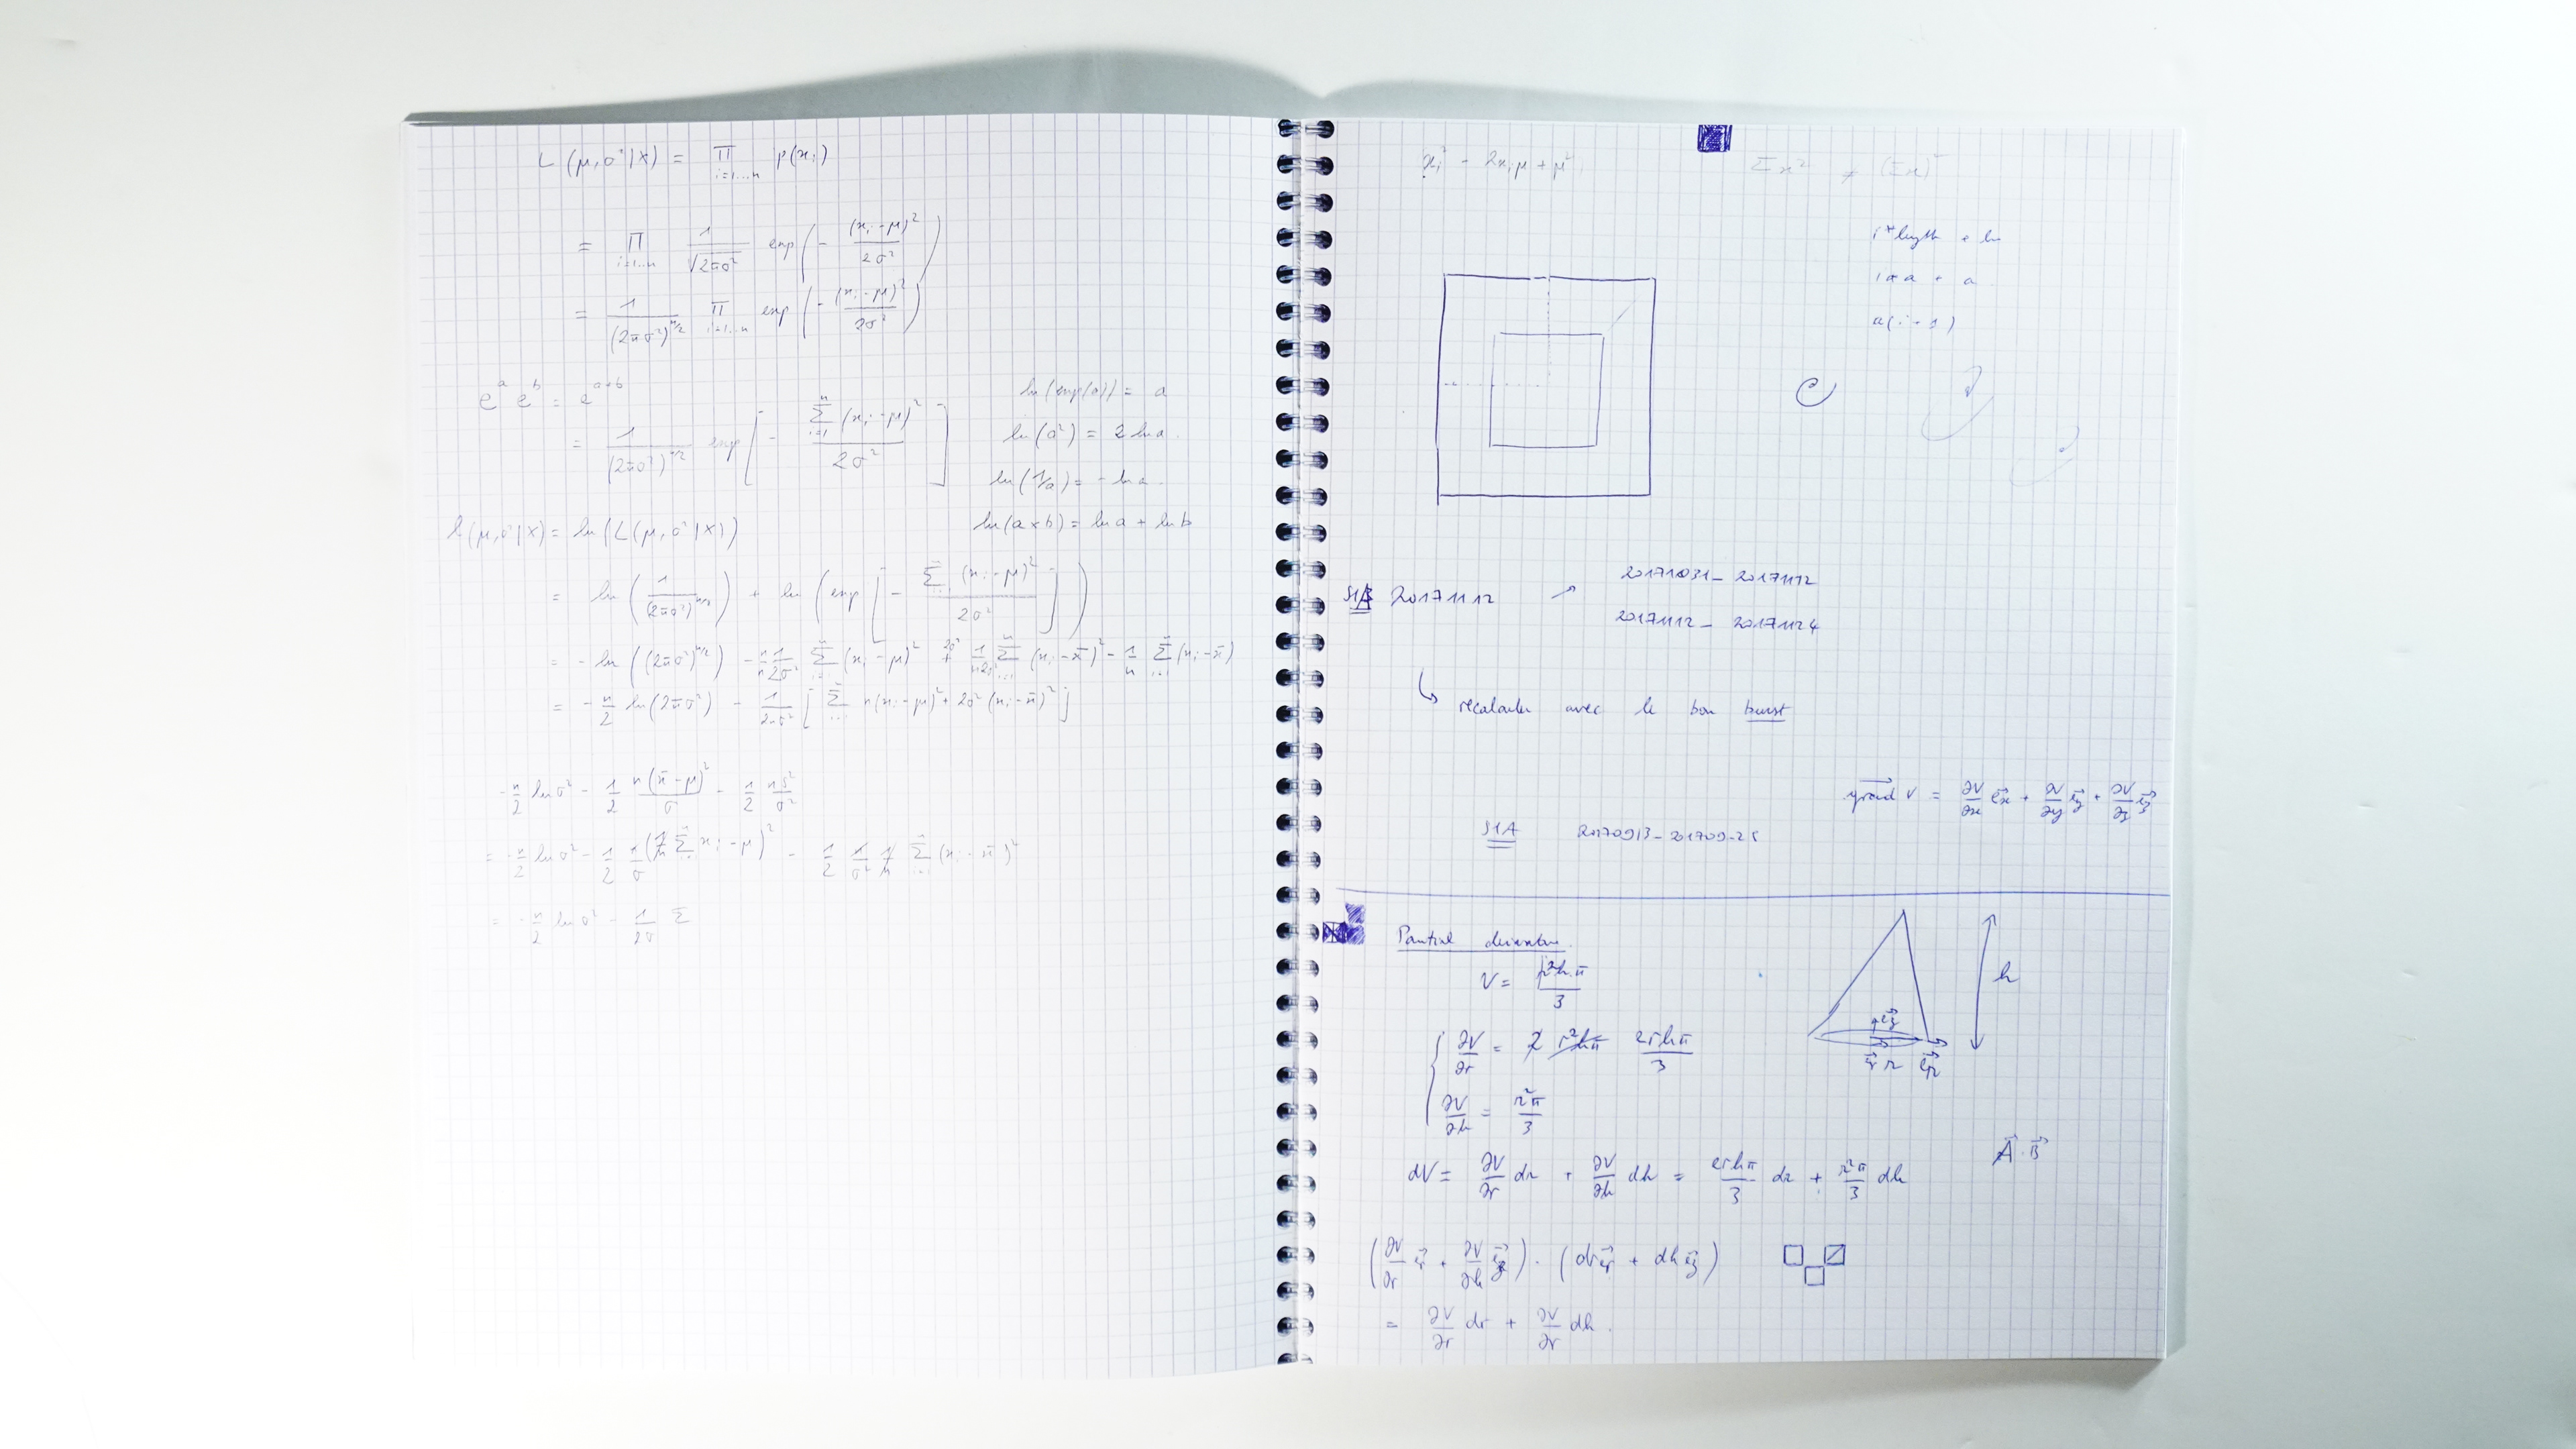 L(μ,σ²|X) = Π i=1...n p(xi)
= Π i=1...n 1/√(2πσ²) exp(- (xi-μ)²/2σ²)
= 1/(2πσ²)^n/2 Π i=1...n exp(- (xi-μ)²/2σ²)
e^a e^b = e^a+b
= 1/(2πσ²)^n/2 exp[- Σ i=1 n (xi-μ)²/2σ²]
ln(exp(a)) = a
ln(a²) = 2 ln a.
ln(1/a) = - ln a.
ln(a×b) = ln a + ln b
l(μ,σ²|X) = ln(L(μ,σ²|X))
= ln(1/(2πσ²)^n/2) + ln(exp[- Σ (xi-μ)²/2σ²])
= - ln((2πσ²)^n/2)
= - n/2 ln(2πσ²) - 1/2nσ² [Σ n(xi-μ)² + 2σ²(xi-x̄)²]
- n/2 ln σ² - 1/2 n(x̄-μ)²/σ - 1/2 ns²/σ²
= - n/2 ln σ² - 1/2 1/σ (1/n Σ xi-μ)² - 1/2 1/σ² 1/n Σ (xi-x̄)²
= - n/2 ln σ² - 1/2σ Σ
xi² - 2xiμ + μ²
Σx² ≠ (Σx)²
i*length + ln
i*a + a
a(i+1)
20171112 ↗ 20171031_ 20171112
20171112_ 20171124
↳ recalculer avec le bon burst
grad V = ∂V/∂x ex + ∂V/∂y ey + ∂V/∂z ez
S1A 20170913_201709-25
Partial derivative.
V = r²h.π/3
h
∂V/∂r = 2 2rhπ/3
ez
er r er
∂V/∂h = r²π/3
A.B
dV = ∂V/∂r dr + ∂V/∂h dh = 2rhπ/3 dr + r²π/3 dh
(∂V/∂r er + ∂V/∂h ez) . (dr er + dh ez)
= ∂V/∂r dr + ∂V/∂r dh.